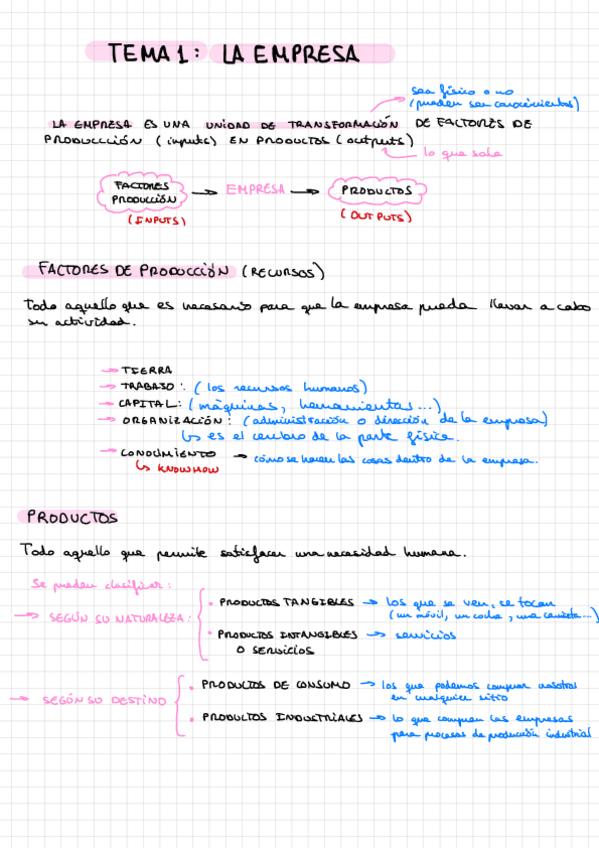 TEMA 1: LA EMPRESA
sea físico o no
(pueden ser conocimientos)
LA EMPRESA ES UNA UNIDAD DE TRANSFORMACIÓN DE FACTORES DE
PRODUCCCIÓN (inputs) EN PRODUCTOS (outputs)
lo que sale
FACTORES PRODUCCIÓN → EMPRESA → PRODUCTOS
(INPUTS) (OUTPUTS)
FACTORES DE PRODUCCIÓN (RECURSOS)
Todo aquello que es necesario para que la empresa pueda llevar a cabo
su actividad.
→ TIERRA
→ TRABAJO: (los recursos humanos)
→ CAPITAL: (máquinas, herramientas...)
→ ORGANIZACIÓN: (administración o dirección de la empresa)
↳ es el cerebro de la parte física.
→ CONOCIMIENTO → cómo se hacen las cosas dentro de la empresa.
↳ KNOWHOW
PRODUCTOS
Todo aquello que permite satisfacer una necesidad humana.
Se pueden clasificar:
→ SEGÚN SU NATURALEZA:
• PRODUCTOS TANGIBLES → los que se ven, se tocan
(un móvil, un coche, una camiseta...)
• PRODUCTOS INTANGIBLES → servicios
O SERVICIOS
→ SEGÚN SU DESTINO
• PRODUCTOS DE CONSUMO → los que podemos comprar nosotros
en cualquier sitio
• PRODUCTOS INDUSTRIALES → lo que compran las empresas
para procesos de producción industrial